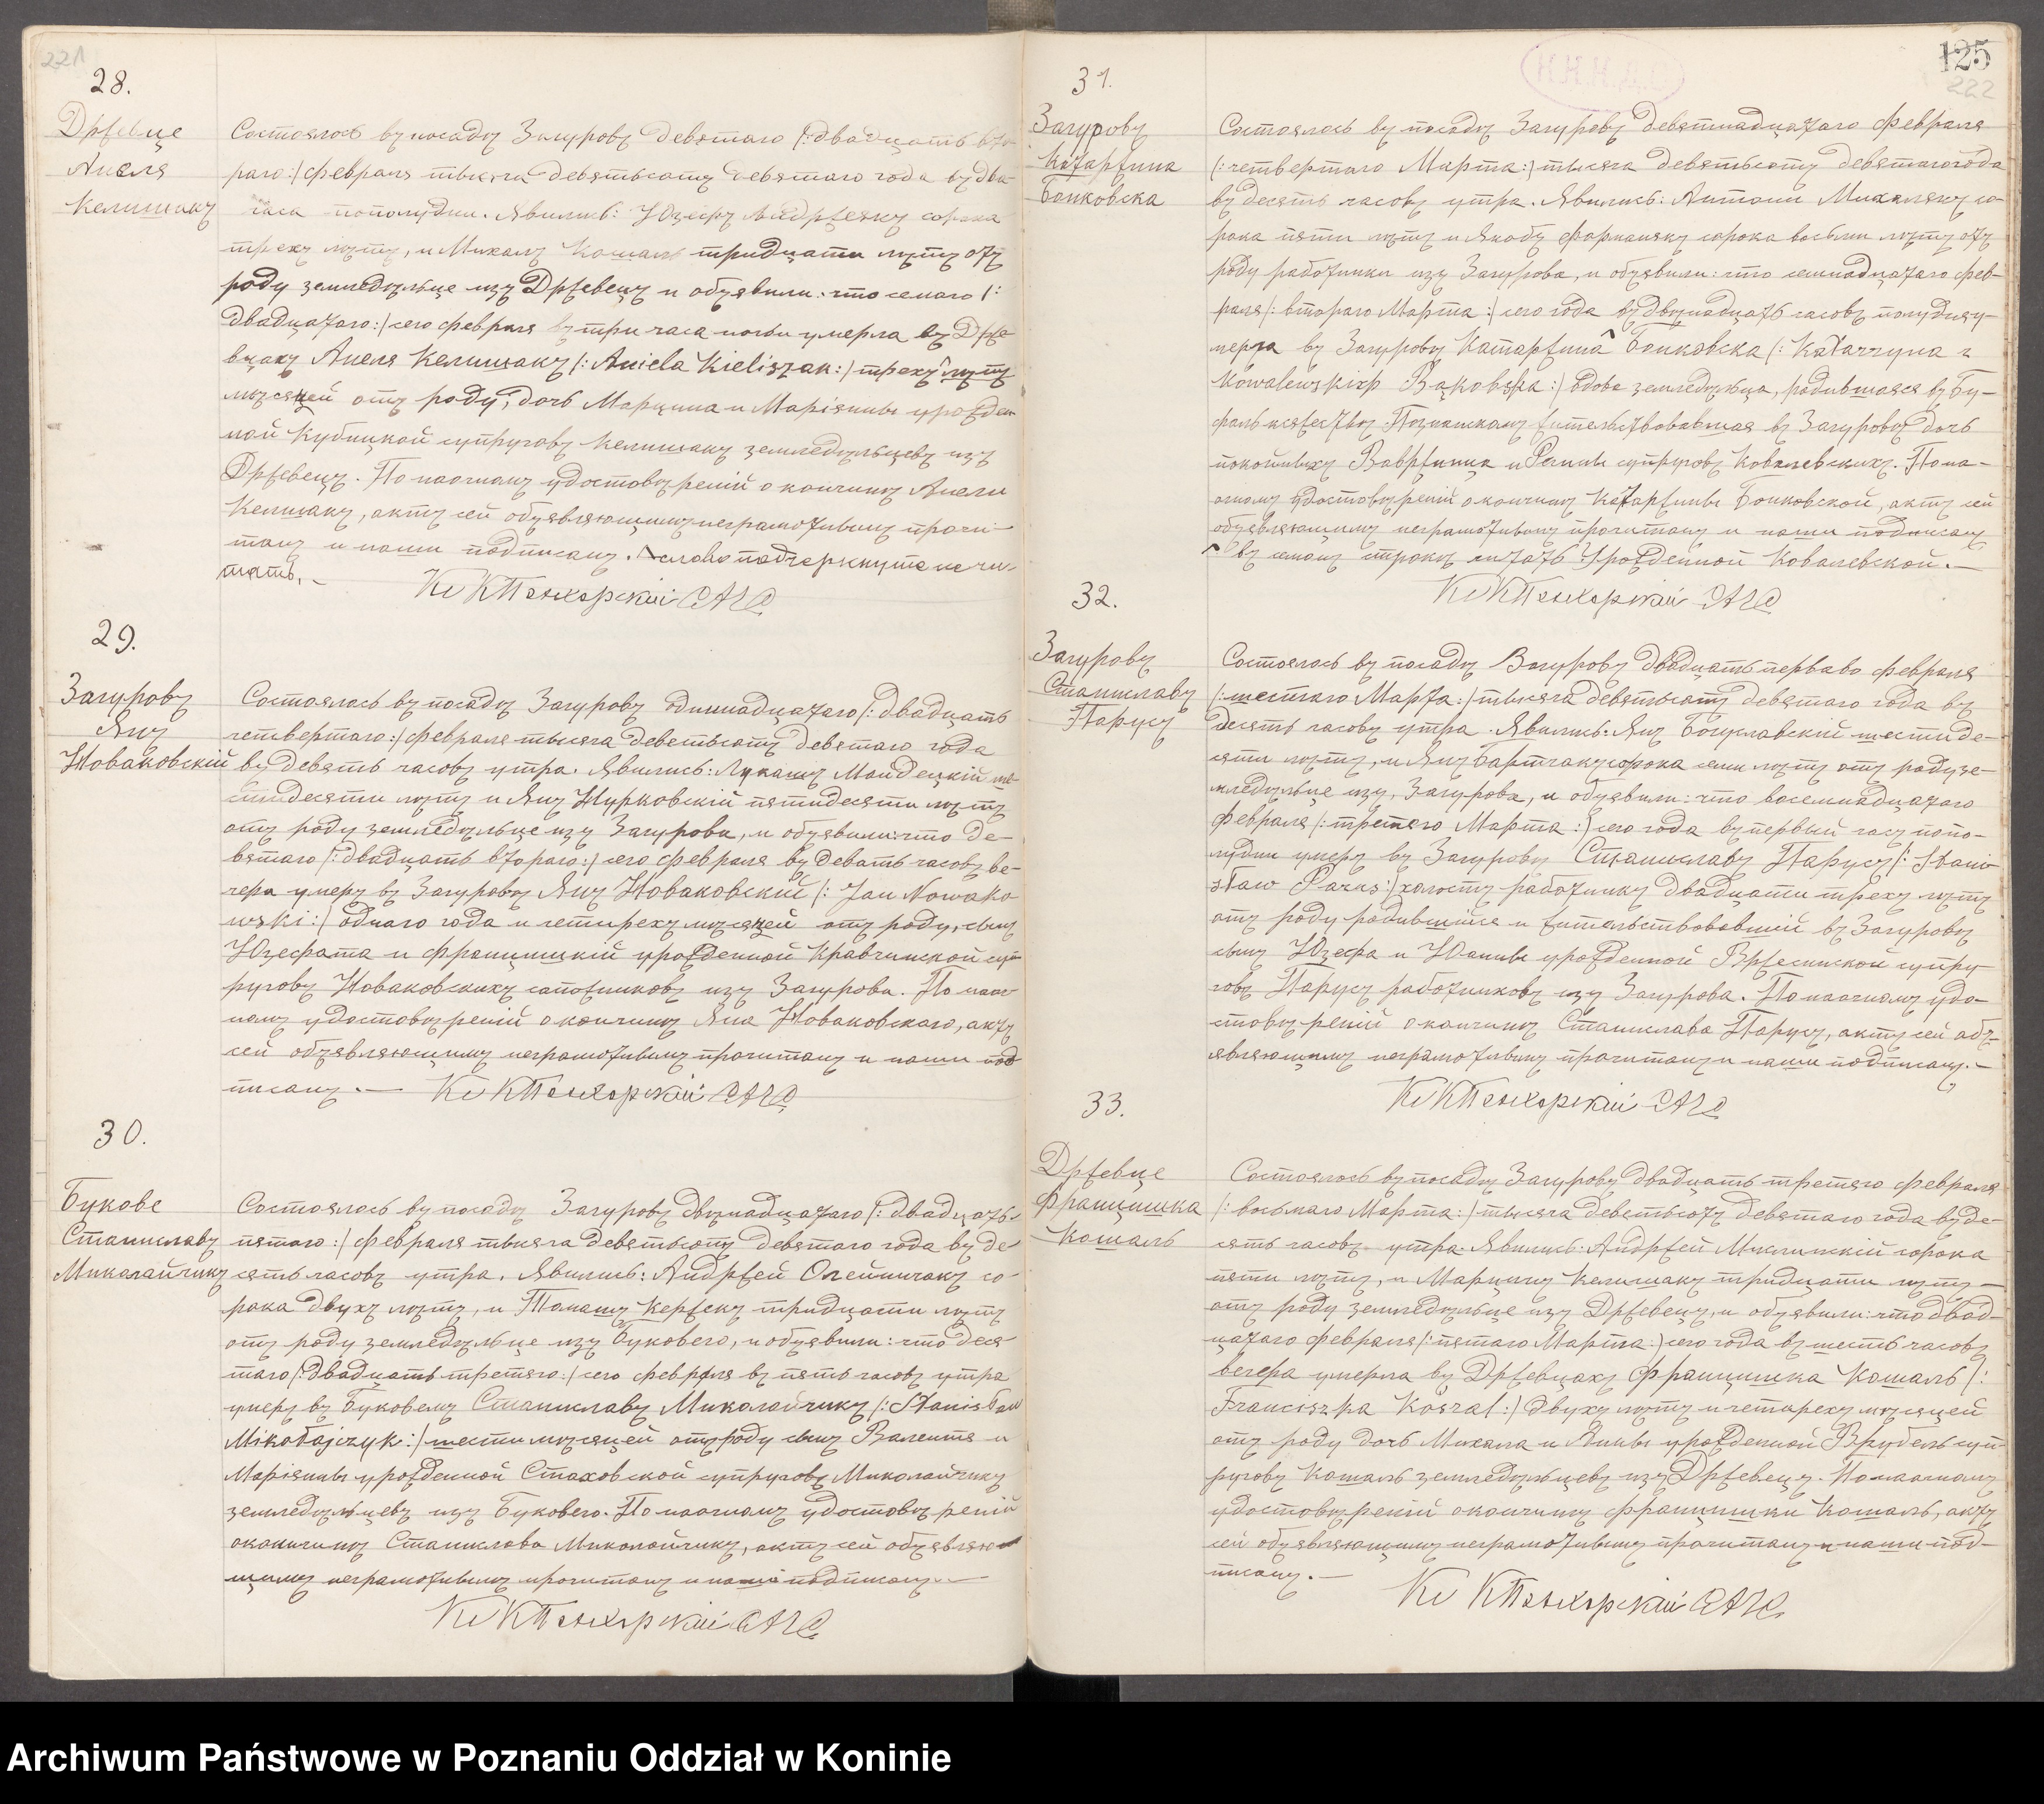 221
28.
Држевце
Анеля
Келишакъ
Состоялось въ посадѣ Загуровѣ девятаго /:двадцать вто-
раго:/ февраля тысяча девятьсотъ девятаго года въ два
часа пополудни. Явились: Юзефъ сорока
трехъ лѣтъ, и Михалъ Кошаль тридцати лѣтъ отъ
роду земледѣльце изъ Држевецъ и объявили: что семаго /:
двадцатаго:/ сего февраля въ три часа ночи умерла въ Држе-
вцахъ Анеля Келишакъ /: Aniela Kieliszak:/ трехъ лѣтъ
мѣсяцей отъ роду, дочь Марцина и Маріянны урожден-
ной Кубицкой супруговъ Келишакъ земледѣльцевъ изъ
Држевецъ. По наочномъ удостовѣреніи о кончинѣ Анели
Келишакъ, актъ сей объявляющимъ неграмотнымъ прочи-
танъ и нами подписанъ. слово подчеркнуто не чи-
тать. –
29.
Загуровъ
Янъ
Новаковскій
Состоялось въ посадѣ Загуровѣ одиннадцатаго /: двадцать
четвертаго:/ февраля тысяча деветьсотъ девятаго года
въ девять часовъ утра. Явились: Лукашъ Мондецкій ше-
стидесяти лѣтъ и Янъ Нурковскій пятидесяти лѣтъ
отъ роду земледѣльце изъ Загурова, и объявили: что де-
вятаго /: двадцать втораго:/ сего февраля въ девять часовъ ве-
чера умеръ въ Загуровѣ Янъ Новаковскій /: Jan Nowako-
wski:/ однаго года и четирехъ мѣсяцей отъ роду, сынъ
Юзефата и Францишкій урожденной Кравчинской суп-
руговъ Новаковскихъ сапожниковъ изъ Загурова. По наоч-
номъ удостовѣреніи о кончинѣ Яна Новаковскаго, актъ
сей объявляющимъ неграмотнымъ прочитанъ и нами под-
писанъ. —
30.
Букове
Станиславъ
Миколайчикъ
Состоялось въ посадѣ Загуровѣ двѣнадцатаго /: двадцать
пятаго:/ февраля тысяча девятьсотъ девятаго года въ де-
сять часовъ утра. Явились: Андржей Олейничакъ со-
рока двухъ лѣтъ, и Томашъ Кержекъ тридцати лѣтъ
отъ роду земледѣльце изъ Буковего, и объявили: что деся-
таго /: двадцать третяго:/ сего февраля въ пять часовъ утра
умеръ въ Буковемъ Станиславъ Миколайчикъ /: Stanisław
Mikołajczyk:/ шести мѣсяцей отъ роду сынъ Валента и
Маріянны урожденной Стаховской супруговъ Миколайчикъ
земледѣльцевъ изъ Буковего. По наочномъ удостовѣреніи
о кончинѣ Станислава Миколайчикъ, актъ сей объявляю-
щимъ неграмотнымъ прочитанъ и нами подписанъ. —
125
222
31.
Загуровъ
Катаржина
Бонковска
Состоялось въ посадѣ Загуровѣ девятнадцатаго февраля
/: четвертаго Марта:/ тысяча девятьсотъ девятаго года
въ десять часовъ утра. Явились: Антони Михалякъ со-
рока пяти лѣтъ и Якобъ Форманякъ сорока восьми лѣтъ отъ
роду работники изъ Загурова, и объявили: что семнадцатаго фев-
раля /: втораго Марта:/ сего года въ двѣнадцать часовъ полудня у-
мерла въ Загуровѣ Катаржина Бонковска /: Katarzyna z
Kowalewskich Bąkowska:/ вдова земледѣльца, родившаяся въ Бу-
жительствовавшая въ Загуровѣ дочь
покойныхъ Вавржинца и супруговъ Ковалевскихъ. По на-
очномъ удостовѣреніи о кончинѣ Катаржины Бонковской, актъ сей
объявляющимъ неграмотнымъ прочитанъ и нами подписанъ
въ семой строкѣ читать Урожденной Ковалевской. —
32.
Загуровъ
Станиславъ
Парусъ
Состоялось въ посадѣ Загуровѣ двадцать перваво февраля
/: шестаго Марта:/ тысяча девятьсотъ девятаго года въ
десять часовъ утра. Явились: Янъ Богуславскій шестиде-
сяти лѣтъ, и Янъ Бартчакъ сорока семи лѣтъ отъ роду зе-
мледѣльце изъ Загурова, и объявили: что восемнадцатаго
февраля /: третяго Марта:/ сего года въ первый часъ попо-
лудни умеръ въ Загуровѣ Станиславъ Парусъ /: Stani-
sław Parus:/ холостъ работникъ двадцати трехъ лѣтъ
отъ роду родившійся и жительствовавшій въ Загуровѣ
сынъ Юзефа и Юанны урожденной Вржесинской супру-
говъ Парусъ работниковъ изъ Загурова. По наочномъ удо-
стовѣреніи о кончинѣ Станислава Парусъ, актъ сей объ-
являющимъ неграмотнымъ прочитанъ и нами подписанъ. —
33.
Држевце
Францишка
Кошаль
Состоялось въ посадѣ Загуровѣ двадцать третяго февраля
/: восьмаго Марта:/ тысяча деветьсотъ девятаго года въ де-
сять часовъ утра. Явились: Андржей Мислинскій сорока
пяти лѣтъ, и Марцинъ Келишакъ тридцати лѣтъ —
отъ роду земледѣльце изъ Држевецъ, и объявили: что двад-
цатаго февраля /: пятаго Марта:/ сего года въ шесть часовъ
вечера умерла въ Држевцахъ Францишка Кошаль /:
Franciszka Koszal:/ двухъ лѣтъ и четырехъ мѣсяцей
отъ роду дочь Михала и Анны урожденной Врубель суп-
руговъ Кошаль земледѣльцевъ изъ Држевецъ. По наочномъ
удостовѣреніи о кончинѣ Францишки Кошаль, актъ
сей объявляющимъ неграмотнымъ прочитанъ и нами под-
писанъ. —
Archiwum Państwowe w Poznaniu Oddział w Koninie